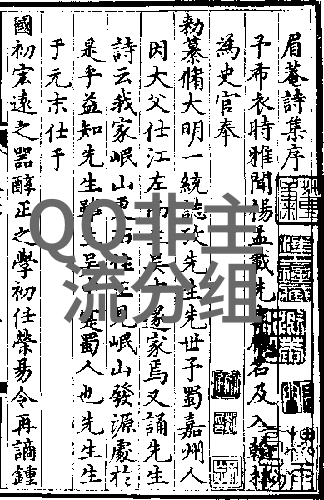 眉菴詩集序
予布衣時雅聞楊孟載先名及入翰林
為史官奉
勅纂脩大明一統誌攷先生先世予蜀嘉州人
因大父仕江左而吳中遂家焉又誦先生
詩云我家岷山更西住正見岷山發源處於
是乎益知先生雖吳蜀人也先生生
于元末仕于
國初宏遠之器醇正之學初任榮易令再謫鍾
QQ非主
流分组